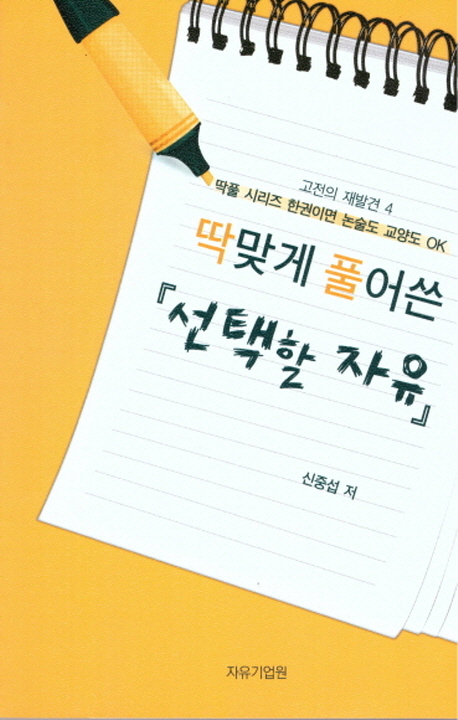 고전의 재발견 4
딱풀 시리즈 한권이면 논술도 교양도 OK
딱맞게 풀어쓴
『선택할 자유』
신중섭 저
자유기업원